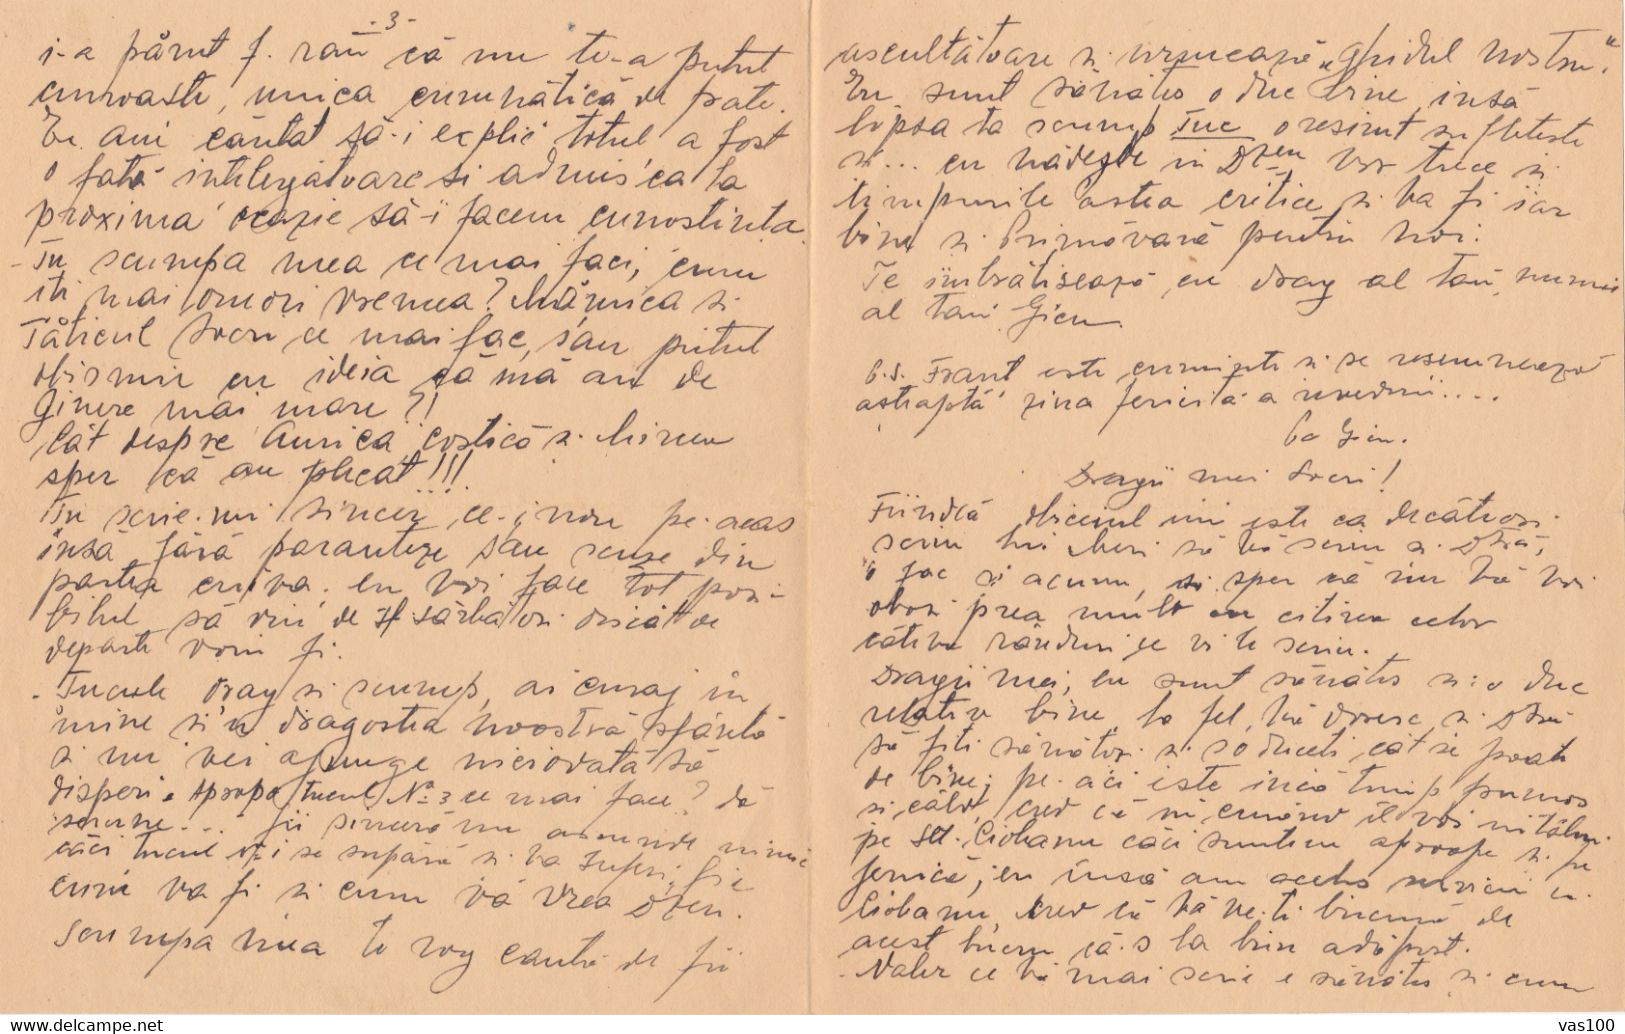 -3-
i-a părut f. rău că nu te-a putut
cunoaste, unica cumnătică de frate.
Eu am căutat să-i explic totul a fost
o fată intelegătoare si admis ca la
proxima ocazie să-i facem cunostinta.
- Tu scumpa mea ce mai faci, cum
iti mai omori vremea? Mămica si
Tăticul Socri ce mai fac, s'au putut
obisnui cu ideia că mă au de
Ginere mai mare?!
Cât despre Aurica, Costică si Mircea
sper că au plecat!!!
Tu scrie-mi sincer ce-i nou pe-acas
insă fără paranteze sau scuze din
partea cuiva, eu voi face tot posi-
bilul să vin de Sf. sărbători oricât de
departe voiu fi.
- Tucule drag si scump, ai curaj în
mine si'n dragostea noastră sfântă
si nu vei ajunge niciodată să
disperi. Apropo, Tucul No 3 ce mai face? dă
semne... fii sinceră nu ascunde nimic
căci Tucul No 1 se supără si va suferi, fie
cum va fi si cum vă vrea Dzeu.
Scumpa mea te rog caută de fii
ascultătoare si urmează „Ghidul nostru".
Eu sunt sănătos o duc bine, insă
lipsa ta scump Tuc o resimt sufleteste
si... cu nădejde in Dzeu vor trece si
timpurile astea critice si va fi iar
bine si Primăvară pentru noi.
Te îmbrătisează cu drag al tău, numai
al tau Gicu.
P.S. Frant este cuminte si se resemnează
asteaptă ziua fericită a revederii....
Pa Gicu.
Dragii mei Socri!
Fiindcă obiceiul imi este ca decâteori
scriu lui Meri să vă scriu si Dtră,
o fac si acum, si sper că nu vă voi
obosi prea mult cu citirea celor
câteva rânduri ce vi le scriu.
Dragii mei, eu sunt sănătos si o duc
relativ bine, la fel vă doresc si Dtră
să fiti sănătosi si s'o duceti cât se poate
de bine; pe aci este incă timp frumos
si căldut, cred că în curând il voi intâlni
pe Slt. Ciobanu căci suntem aproape si pe
ferice, eu insă am acelas serviciu cu
Ciobanu, cred că vă ve-ti bucură de
acest lucru că-s la bun adăpost.
- Valer ce vă mai scrie e sănătos si cum
vas100